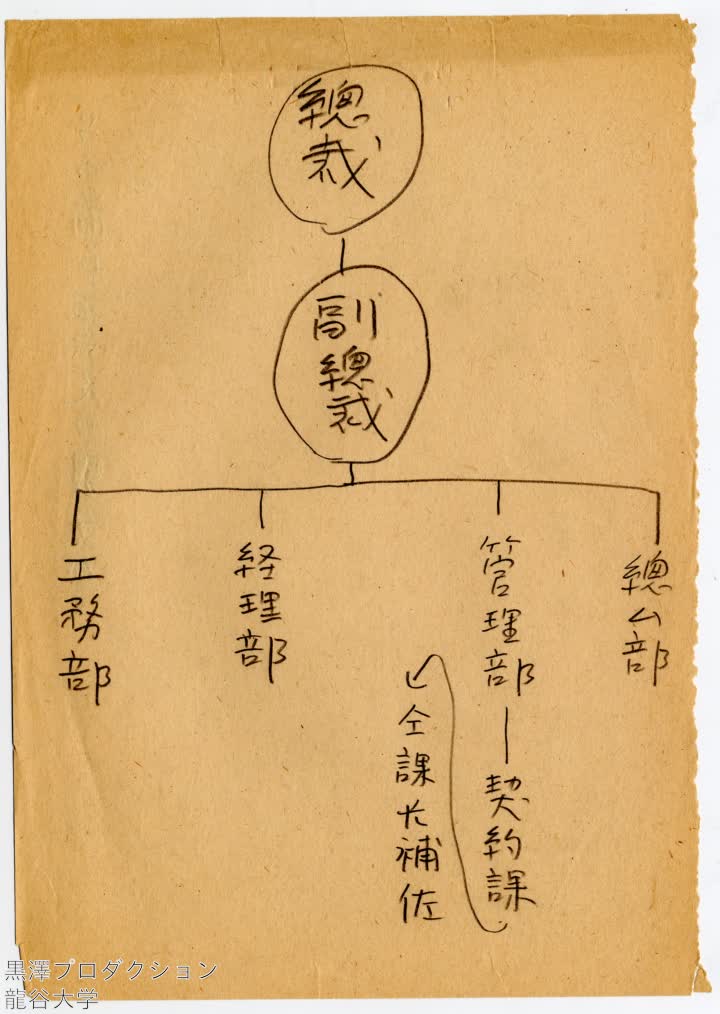 總裁
副總裁
總ム部
管理部
契約課
仝課長補佐
経理部
工務部
黒澤プロダクション
龍谷大学